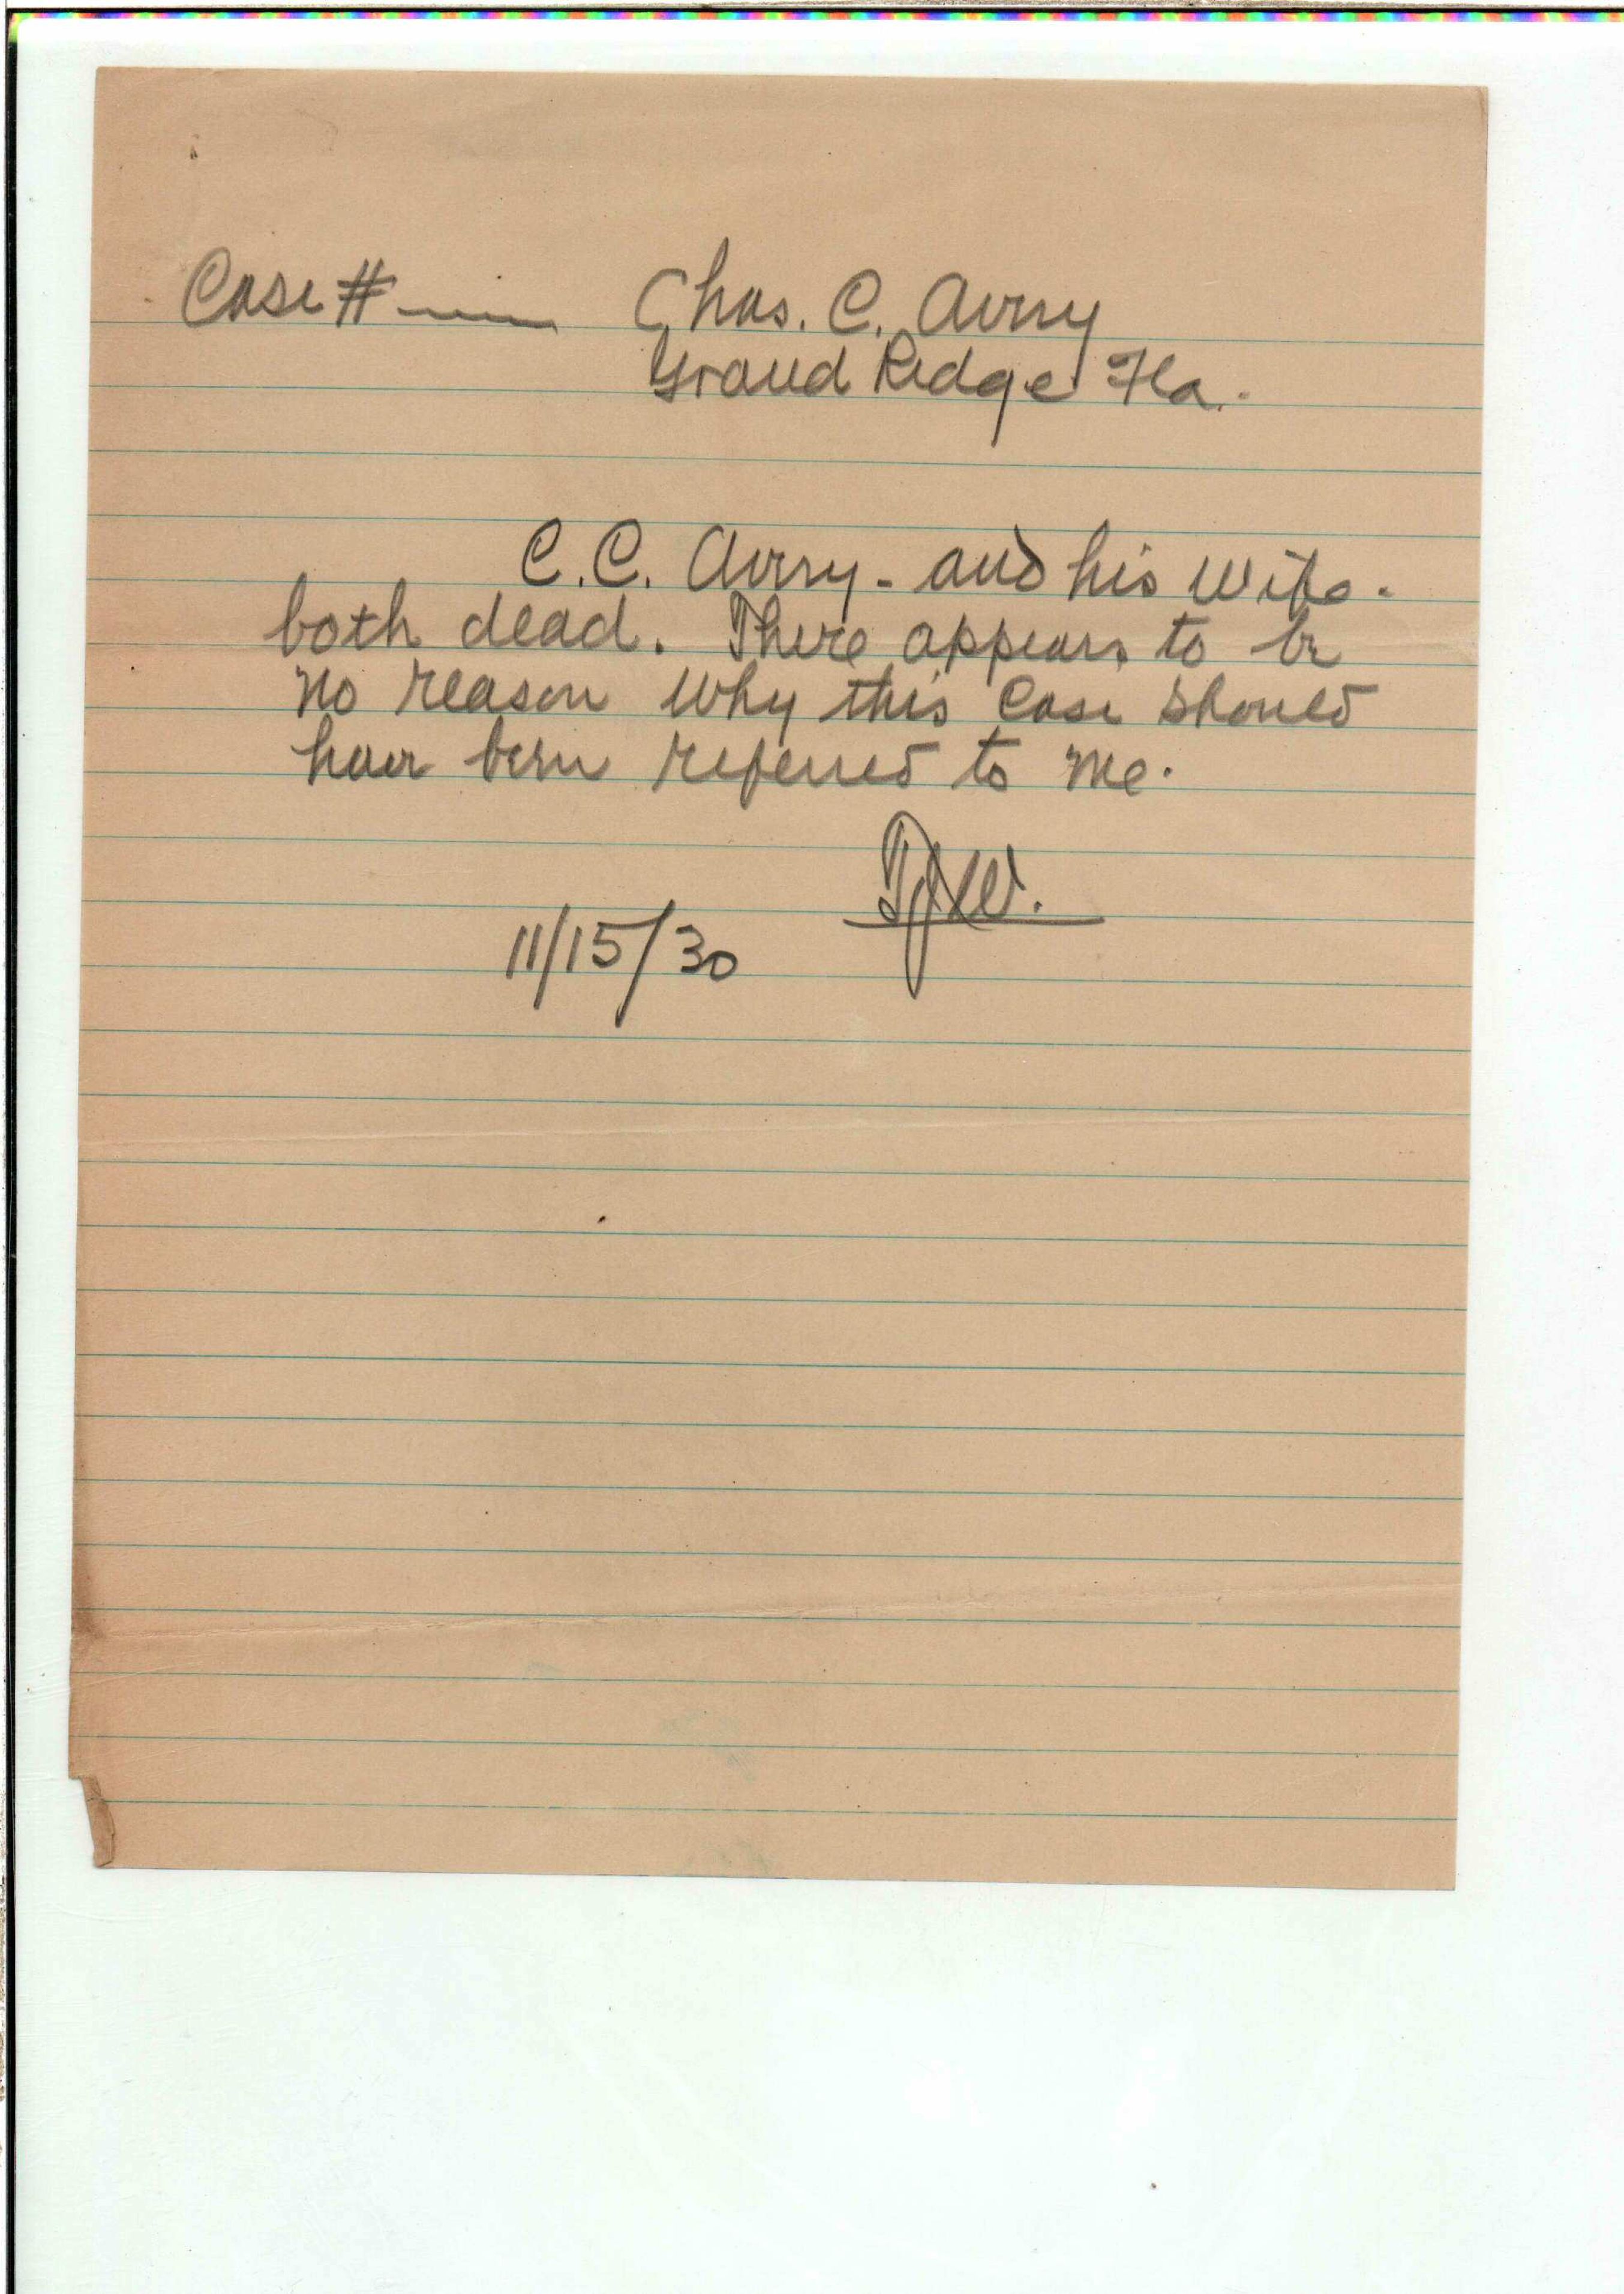 Case # —— Chas. C. Avery
Grand Ridge Fla.
C.C. Avery - and his wife -
both dead. There appears to be
no reason why this case should
have been referred to me.
11/15/30